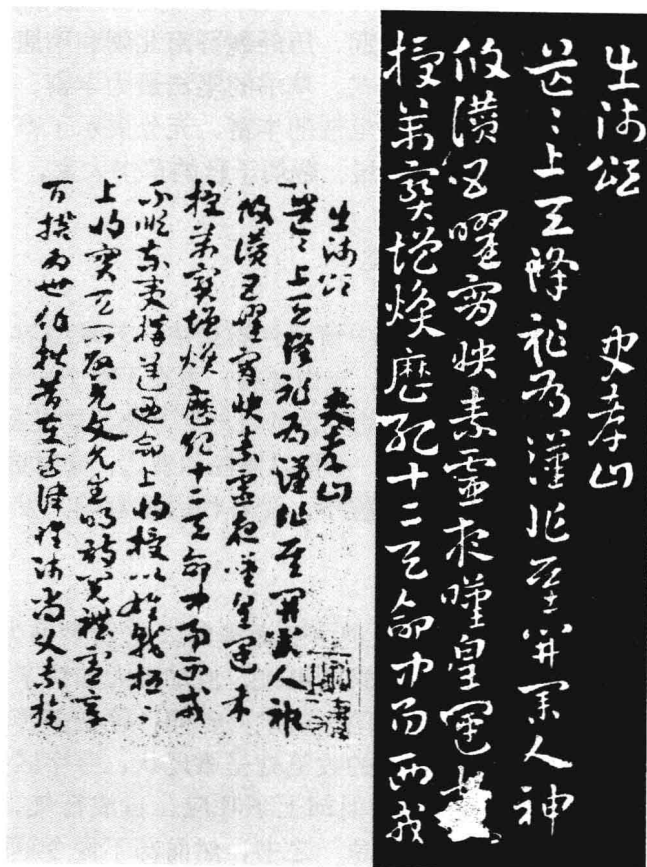 出師頌 史孝山
茫〻上天降祚為漢作基開業人神
攸讚五曜宵映素靈夜嘆皇運未
授萬寶增煥歷紀十二天命中易西戎
出師頌 史孝山
茫〻上天降祚為漢作基開業人神
攸讚五曜宵映素靈夜嘆皇運未
授萬寶增煥歷紀十二天命中易西戎
不順東夷構逆乃命上將授以雄戟桓〻
上將實天所啟允文允武明詩閱禮憲章
百揆為世作楷昔在孟津惟師尚父素旄